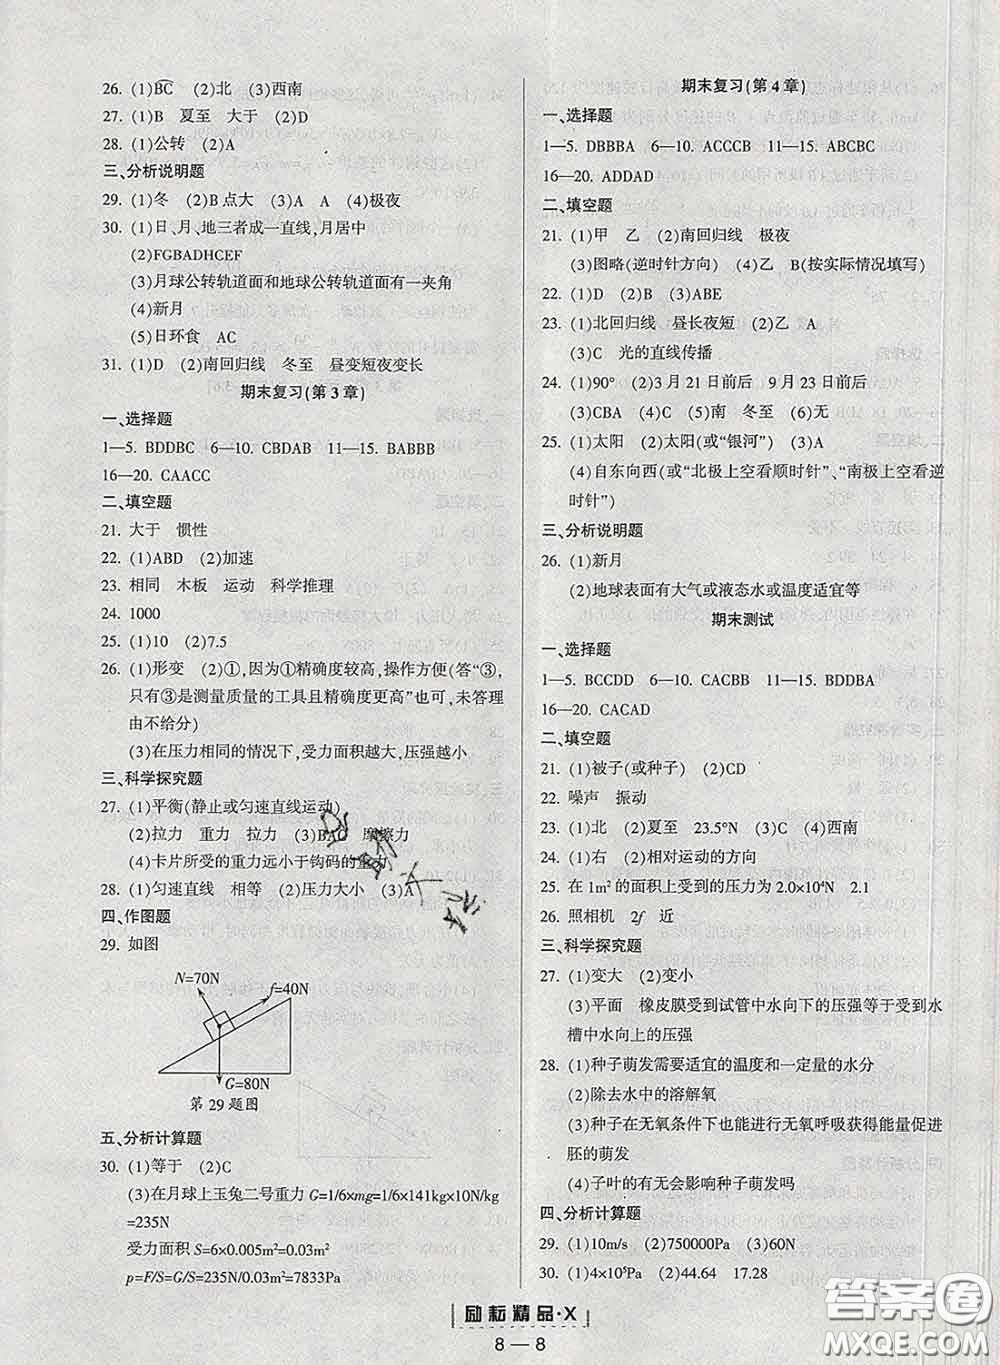 26. (1)BC (2)北 (3)西南
27. (1)B 夏至 大于 (2)D
28. (1)公转 (2)A
三、分析说明题
29. (1)冬 (2)B点大 (3)A A (4)极夜
30. (1)日、月、地三者成一直线,月居中
(2)FGBADHCEF
(3)月球公转轨道面和地球公转轨道面有一夹角
(4)新月
(5)日环食 AC
31. (1)D (2)南回归线 冬至 昼变短夜变长
期末复习(第3章)
一、选择题
1—5. BDDBC 6—10. CBDAB 11—15. BABBB
16—20. CAACC
二、填空题
21. 大于 惯性
22. (1)ABD (2)加速
23. 相同 木板 运动 科学推理
24. 1000
25. (1)10 (2)7.5
26. (1)形变 (2)①,因为①精确度较高,操作方便(答“③,
只有③是测量质量的工具且精确度更高”也可,未答理
由不给分)
(3)在压力相同的情况下,受力面积越大,压强越小
三、科学探究题
27. (1)平衡(静止或匀速直线运动)
(2)拉力 重力 拉力 (3)BAC 摩擦力
(4)卡片所受的重力远小于钩码的重力
28. (1)匀速直线 相等 (2)压力大小 (3)A
四、作图题
29. 如图
N=70N
f=40N
G=80N
第29题图
五、分析计算题
30. (1)等于 (2)C
(3)在月球上玉兔二号重力 G=1/6×mg=1/6×141kg×10N/kg
=235N
受力面积 S=6×0.005m²=0.03m²
p=F/S=G/S=235N/0.03m²=7833Pa
期末复习(第4章)
一、选择题
1—5. DBBBA 6—10. ACCCB 11—15. ABCBC
16—20. ADDAD
二、填空题
21. (1)甲 乙 (2)南回归线 极夜
(3)图略(逆时针方向) (4)乙 B(按实际情况填写)
22. (1)D (2)B (3)ABE
23. (1)北回归线 昼长夜短 (2)乙 A
(3)C 光的直线传播
24. (1)90° (2)3月21日前后 9月23日前后
(3)CBA (4)C (5)南 冬至 (6)无
25. (1)太阳 (2)太阳(或“银河”) (3)A
(4)自东向西(或“北极上空看顺时针”、“南极上空看逆
时针”)
三、分析说明题
26. (1)新月
(2)地球表面有大气或液态水或温度适宜等
期末测试
一、选择题
1—5. BCCDD 6—10. CACBB 11—15. BDDBA
16—20. CACAD
二、填空题
21. (1)被子(或种子) (2)CD
22. 噪声 振动
23. (1)北 (2)夏至 23.5°N (3)C (4)西南
24. (1)右 (2)相对运动的方向
25. 在1m²的面积上受到的压力为2.0×10⁴N 2.1
26. 照相机 2f 近
三、科学探究题
27. (1)变大 (2)变小
(3)平面 橡皮膜受到试管中水向下的压强等于受到水
槽中水向上的压强
28. (1)种子萌发需要适宜的温度和一定量的水分
(2)除去水中的溶解氧
(3)种子在无氧条件下也能进行无氧呼吸获得能量促进
胚的萌发
(4)子叶的有无会影响种子萌发吗
四、分析计算题
29. (1)10m/s (2)750000Pa (3)60N
30. (1)4×10⁵Pa (2)44.64 17.28
励耘精品·X
8—8
答案圈
MXQE.COM